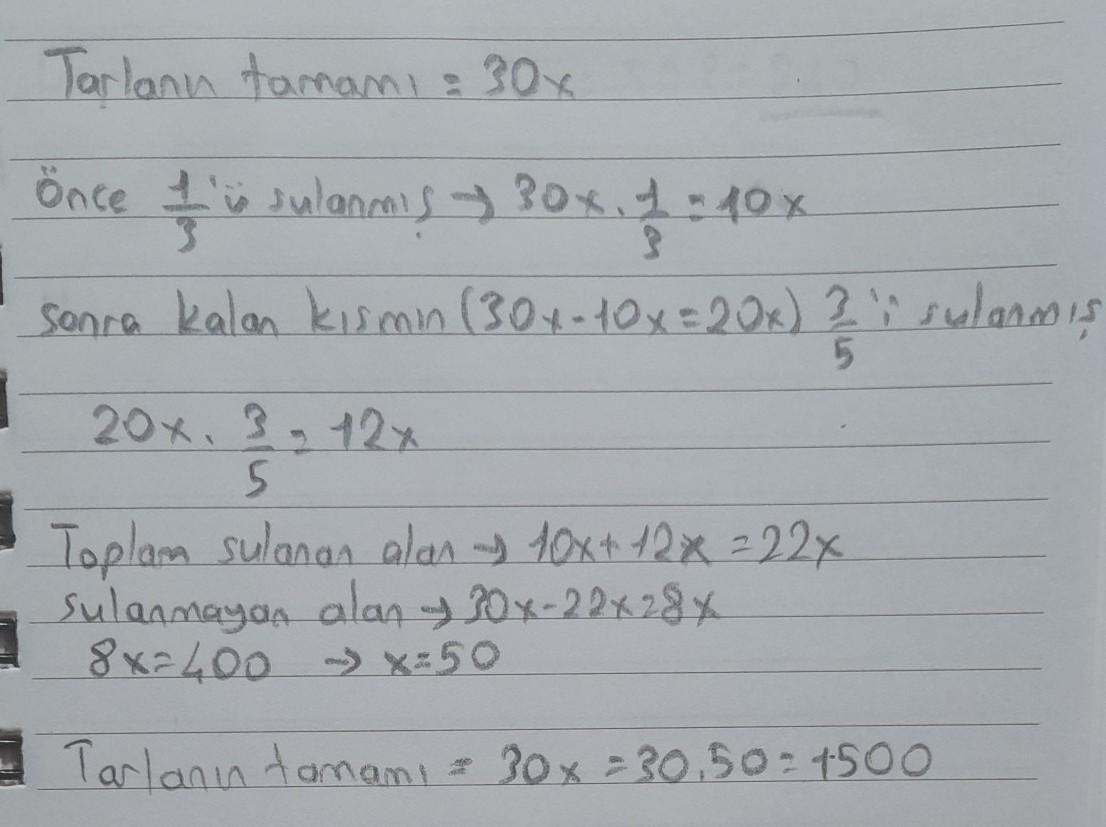 Tarlanın tamamı = 30x
Önce 1/3'ü sulanmış → 30x . 1/3 = 10x
sonra kalan kısmın (30x-10x=20x) 3/5'i sulanmış
20x . 3/5 = 12x
Toplam sulanan alan → 10x+12x=22x
sulanmayan alan → 30x-22x=8x
8x=400 → x=50
Tarlanın tamamı = 30x = 30.50 = 1500